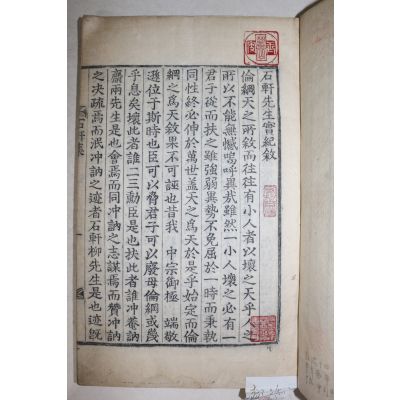 石軒先生實紀敘
倫綱天之所敘而往往有小人者以壞之天乎人之
所以不能無憾嗚呼異哉雖然一小人壞之必有一
君子從而扶之雖強弱異勢不免屈於一時而秉執
同性終必伸於萬世盖天之爲天於是乎始定而倫
綱之爲天敘果不可誣也昔我 中宗御極 端敬
遜位于斯時也臣可以脅君子可以廢母倫綱或幾
乎息矣壞此者誰二三勳臣是也扶此者誰冲菴訥
齋兩先生是也會焉而同冲訥之志謀焉而賛冲訥
之决疏焉而泯冲訥之迹者石軒柳先生是也迹旣
石軒集